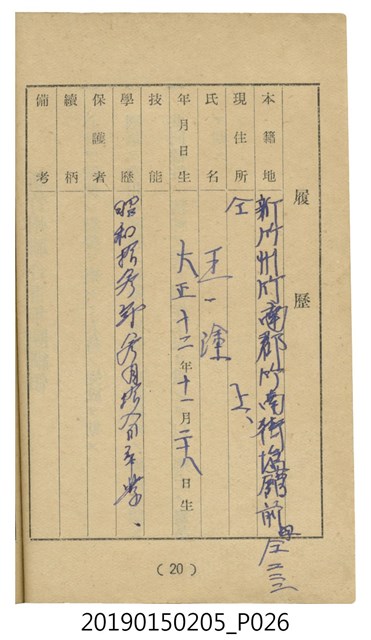 履歷
本籍地 新竹州竹南郡竹南街塩館前
現住所 仝 上、
氏名 王一塗
年月日生 大正十二年十一月二十八日生
技能
學歷 昭和拾
保護者
續柄
備考
(20)
20190150205_P026